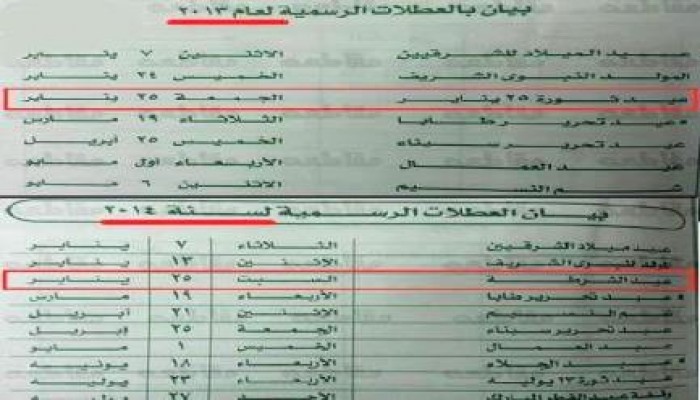 بيان بالعطلات الرسمية لعام ٢٠١٣
عيد الميلاد للشرقيين الاثنين ٧ يناير
المولد النبوى الشريف الخميس ٢٤ يناير
عيد ثورة ٢٥ يناير الجمعة ٢٥ يناير
* عيد تحرير طابا الثلاثاء ١٩ مارس
عيد تحرير سيناء الخميس ٢٥ أبريل
عيد العمال الأربعاء أول مايو
شم النسيم الاثنين ٦ مايو
بيان العطلات الرسمية لسنة ٢٠١٤
عيد ميلاد الشرقيين الثلاثاء ٧ يناير
المولد النبوى الشريف الاثنين ١٣ يناير
عيد الشرطة السبت ٢٥ يناير
* عيد تحرير طابا الأربعاء ١٩ مارس
شم النسيم الاثنين ٢١ أبريل
عيد تحرير سيناء الجمعة ٢٥ إبريل
عيد العمال الخميس ١ مايو
* عيد الجلاء الأربعاء ١٨ يونيه
عيد ثورة ٢٣ يوليه الأربعاء ٢٣ يوليه
وقفة عيد الفطر المبارك الأحد ٢٧ يوليه